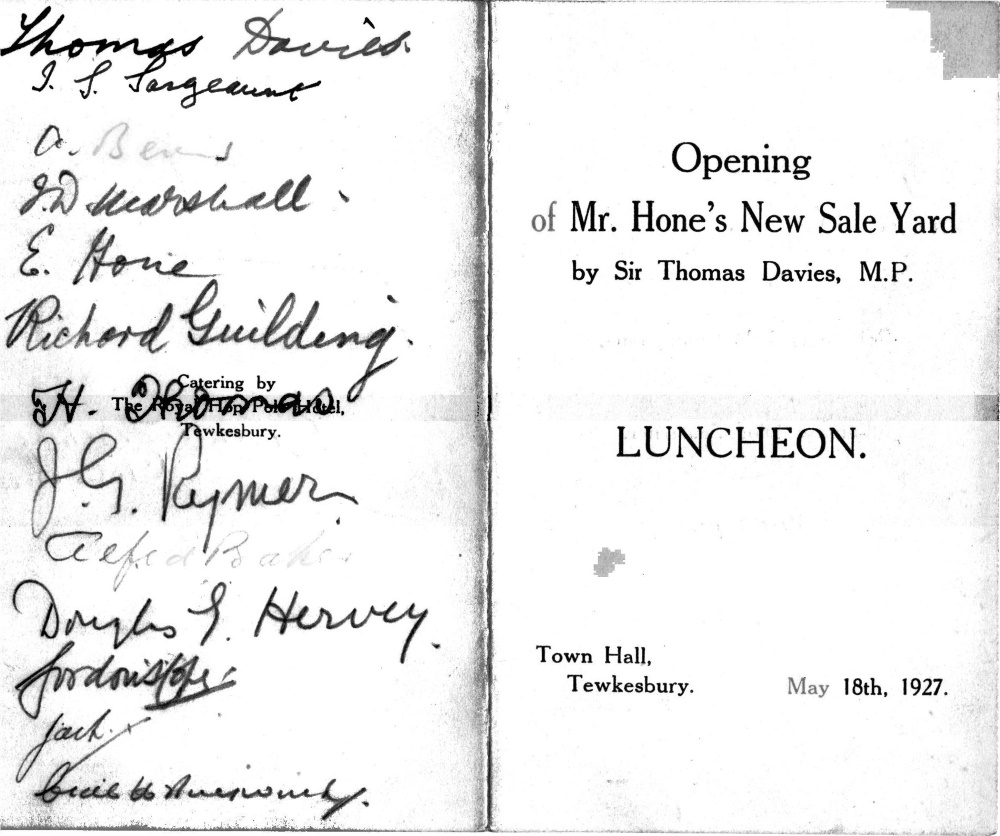 Thomas Davies
I. S. Sargeaunt
A.
J.D Marshall
E. Hone
Richard Guilding.
H. Thomas
Catering by
The Royal Hop Pole Hotel,
Tewkesbury.
J. G. Rymer
Alfred Baker
Douglas G. Hervey.
Jack.
Opening
of Mr. Hone's New Sale Yard
by Sir Thomas Davies, M.P.
LUNCHEON.
Town Hall,
Tewkesbury.
May 18th, 1927.